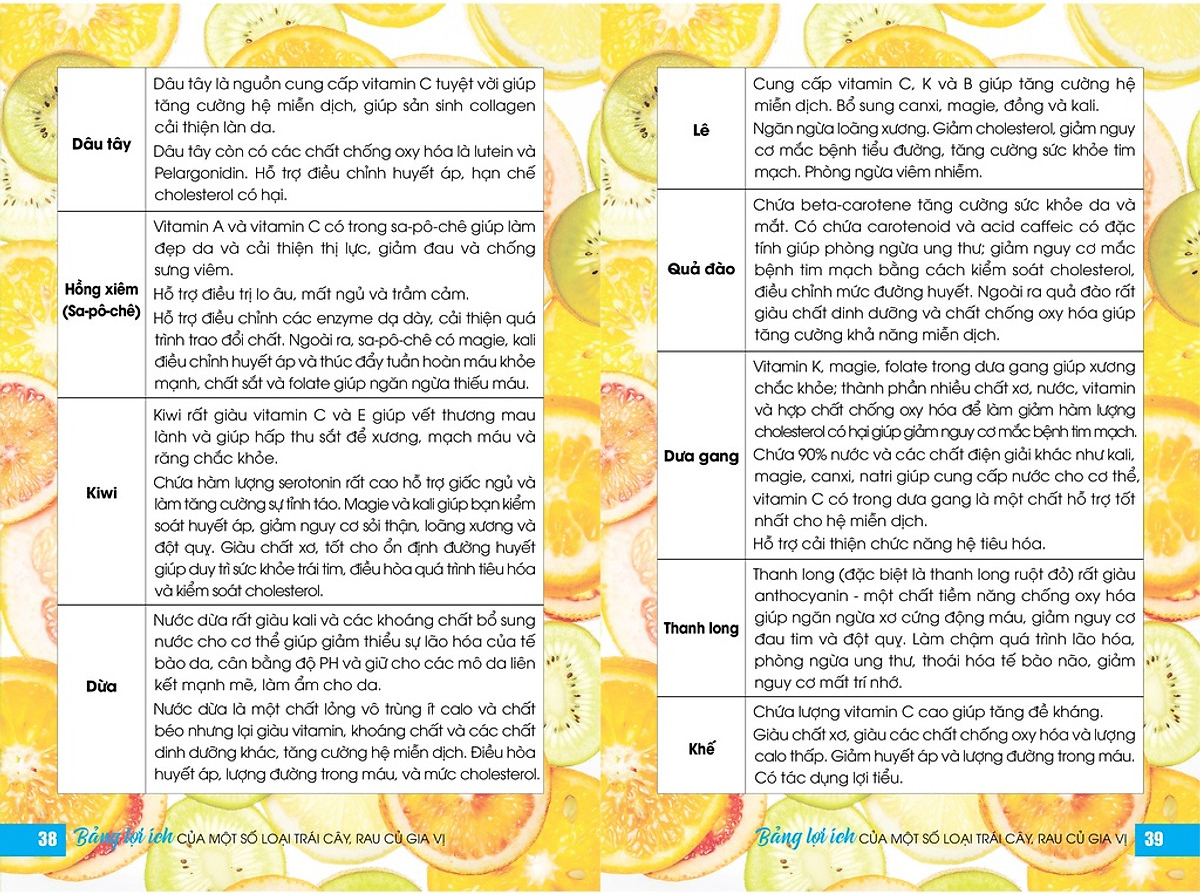 Dâu tây
Dâu tây là nguồn cung cấp vitamin C tuyệt vời giúp
tăng cường hệ miễn dịch, giúp sản sinh collagen
cải thiện làn da.
Dâu tây còn có các chất chống oxy hóa là lutein và
Pelargonidin. Hỗ trợ điều chỉnh huyết áp, hạn chế
cholesterol có hại.
Hồng xiêm
(Sa-pô-chê)
Vitamin A và vitamin C có trong sa-pô-chê giúp làm
đẹp da và cải thiện thị lực, giảm đau và chống
sưng viêm.
Hỗ trợ điều trị lo âu, mất ngủ và trầm cảm.
Hỗ trợ điều chỉnh các enzyme dạ dày, cải thiện quá
trình trao đổi chất. Ngoài ra, sa-pô-chê có magie, kali
điều chỉnh huyết áp và thúc đẩy tuần hoàn máu khỏe
mạnh, chất sắt và folate giúp ngăn ngừa thiếu máu.
Kiwi
Kiwi rất giàu vitamin C và E giúp vết thương mau
lành và giúp hấp thu sắt để xương, mạch máu và
răng chắc khỏe.
Chứa hàm lượng serotonin rất cao hỗ trợ giấc ngủ và
làm tăng cường sự tỉnh táo. Magie và kali giúp bạn kiểm
soát huyết áp, giảm nguy cơ sỏi thận, loãng xương và
đột quỵ. Giàu chất xơ, tốt cho ổn định đường huyết
giúp duy trì sức khỏe trái tim, điều hòa quá trình tiêu hóa
và kiểm soát cholesterol.
Dừa
Nước dừa rất giàu kali và các khoáng chất bổ sung
nước cho cơ thể giúp giảm thiểu sự lão hóa của tế
bào da, cân bằng độ PH và giữ cho các mô da liên
kết mạnh mẽ, làm ẩm cho da.
Nước dừa là một chất lỏng vô trùng ít calo và chất
béo nhưng lại giàu vitamin, khoáng chất và các chất
dinh dưỡng khác, tăng cường hệ miễn dịch. Điều hòa
huyết áp, lượng đường trong máu, và mức cholesterol.
38 Bảng lợi ích CỦA MỘT SỐ LOẠI TRÁI CÂY, RAU CỦ GIA VỊ
Lê
Cung cấp vitamin C, K và B giúp tăng cường hệ
miễn dịch. Bổ sung canxi, magie, đồng và kali.
Ngăn ngừa loãng xương. Giảm cholesterol, giảm nguy
cơ mắc bệnh tiểu đường, tăng cường sức khỏe tim
mạch. Phòng ngừa viêm nhiễm.
Quả đào
Chứa beta-carotene tăng cường sức khỏe da và
mắt. Có chứa carotenoid và acid caffeic có đặc
tính giúp phòng ngừa ung thư; giảm nguy cơ mắc
bệnh tim mạch bằng cách kiểm soát cholesterol,
điều chỉnh mức đường huyết. Ngoài ra quả đào rất
giàu chất dinh dưỡng và chất chống oxy hóa giúp
tăng cường khả năng miễn dịch.
Dưa gang
Vitamin K, magie, folate trong dưa gang giúp xương
chắc khỏe; thành phần nhiều chất xơ, nước, vitamin
và hợp chất chống oxy hóa để làm giảm hàm lượng
cholesterol có hại giúp giảm nguy cơ mắc bệnh tim mạch.
Chứa 90% nước và các chất điện giải khác như kali,
magie, canxi, natri giúp cung cấp nước cho cơ thể,
vitamin C có trong dưa gang là một chất hỗ trợ tốt
nhất cho hệ miễn dịch.
Hỗ trợ cải thiện chức năng hệ tiêu hóa.
Thanh long
Thanh long (đặc biệt là thanh long ruột đỏ) rất giàu
anthocyanin - một chất tiềm năng chống oxy hóa
giúp ngăn ngừa xơ cứng động máu, giảm nguy cơ
đau tim và đột quỵ. Làm chậm quá trình lão hóa,
phòng ngừa ung thư, thoái hóa tế bào não, giảm
nguy cơ mất trí nhớ.
Khế
Chứa lượng vitamin C cao giúp tăng đề kháng.
Giàu chất xơ, giàu các chất chống oxy hóa và lượng
calo thấp. Giảm huyết áp và lượng đường trong máu.
Có tác dụng lợi tiểu.
Bảng lợi ích CỦA MỘT SỐ LOẠI TRÁI CÂY, RAU CỦ GIA VỊ 39